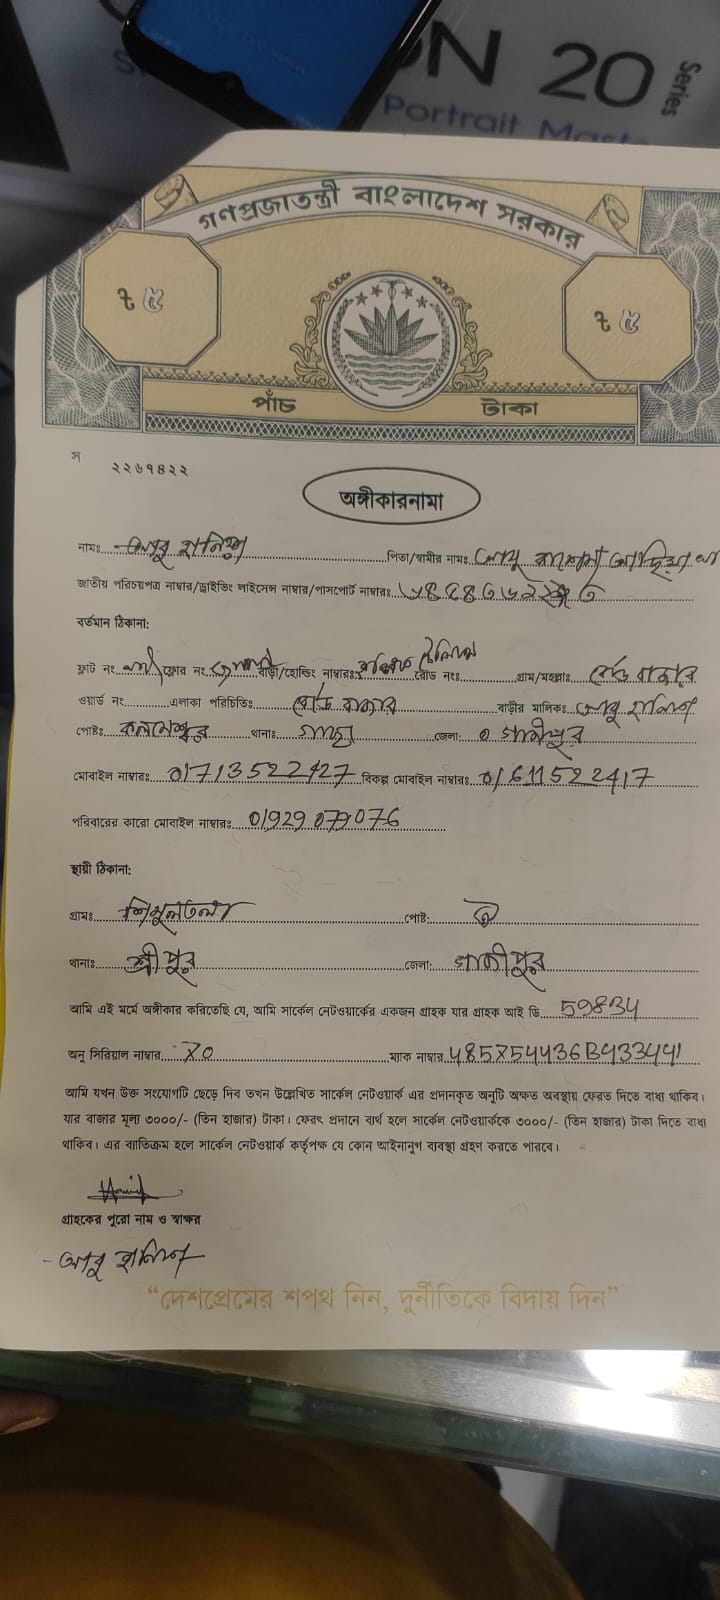 ON 20 Series
Portrait Maste
গণপ্রজাতন্ত্রী বাংলাদেশ সরকার
৳ ৫
৳ ৫
পাঁচ টাকা
স ২২৬৭৪২২
অঙ্গীকারনামা
নামঃ আবু হানিফা পিতা/স্বামীর নামঃ
জাতীয় পরিচয়পত্র নাম্বার/ড্রাইভিং লাইসেন্স নাম্বার/পাসপোর্ট নাম্বারঃ
বর্তমান ঠিকানা:
ফ্লাট নং ফ্লোর নং বাড়ী/হোল্ডিং নাম্বারঃ রোড নংঃ গ্রাম/মহল্লাঃ বোর্ড বাজার
ওয়ার্ড নং এলাকা পরিচিতিঃ বোর্ড বাজার বাড়ীর মালিকঃ আবু হানিফা
পোষ্টঃ কলমেশ্বর থানাঃ গাছা জেলা: গাজীপুর
মোবাইল নাম্বারঃ 01713522427 বিকল্প মোবাইল নাম্বারঃ 01611522417
পরিবারের কারো মোবাইল নাম্বারঃ 01929079076
স্থায়ী ঠিকানা:
গ্রামঃ শিমুলতলা পোষ্ট:
থানাঃ শ্রীপুর জেলা: গাজীপুর
আমি এই মর্মে অঙ্গীকার করিতেছি যে, আমি সার্কেল নেটওয়ার্কের একজন গ্রাহক যার গ্রাহক আই ডি 59834
অনু সিরিয়াল নাম্বার X0 ম্যাক নাম্বার 485754436B433441
আমি যখন উক্ত সংযোগটি ছেড়ে দিব তখন উল্লেখিত সার্কেল নেটওয়ার্ক এর প্রদানকৃত অনুটি অক্ষত অবস্থায় ফেরত দিতে বাধ্য থাকিব।
যার বাজার মূল্য ৩০০০/- (তিন হাজার) টাকা। ফেরৎ প্রদানে ব্যর্থ হলে সার্কেল নেটওয়ার্ককে ৩০০০/- (তিন হাজার) টাকা দিতে বাধ্য
থাকিব। এর ব্যতিক্রম হলে সার্কেল নেটওয়ার্ক কর্তৃপক্ষ যে কোন আইনানুগ ব্যবস্থা গ্রহণ করতে পারবে।
গ্রাহকের পুরো নাম ও স্বাক্ষর
আবু হানিফা
“দেশপ্রেমের শপথ নিন, দুর্নীতিকে বিদায় দিন”